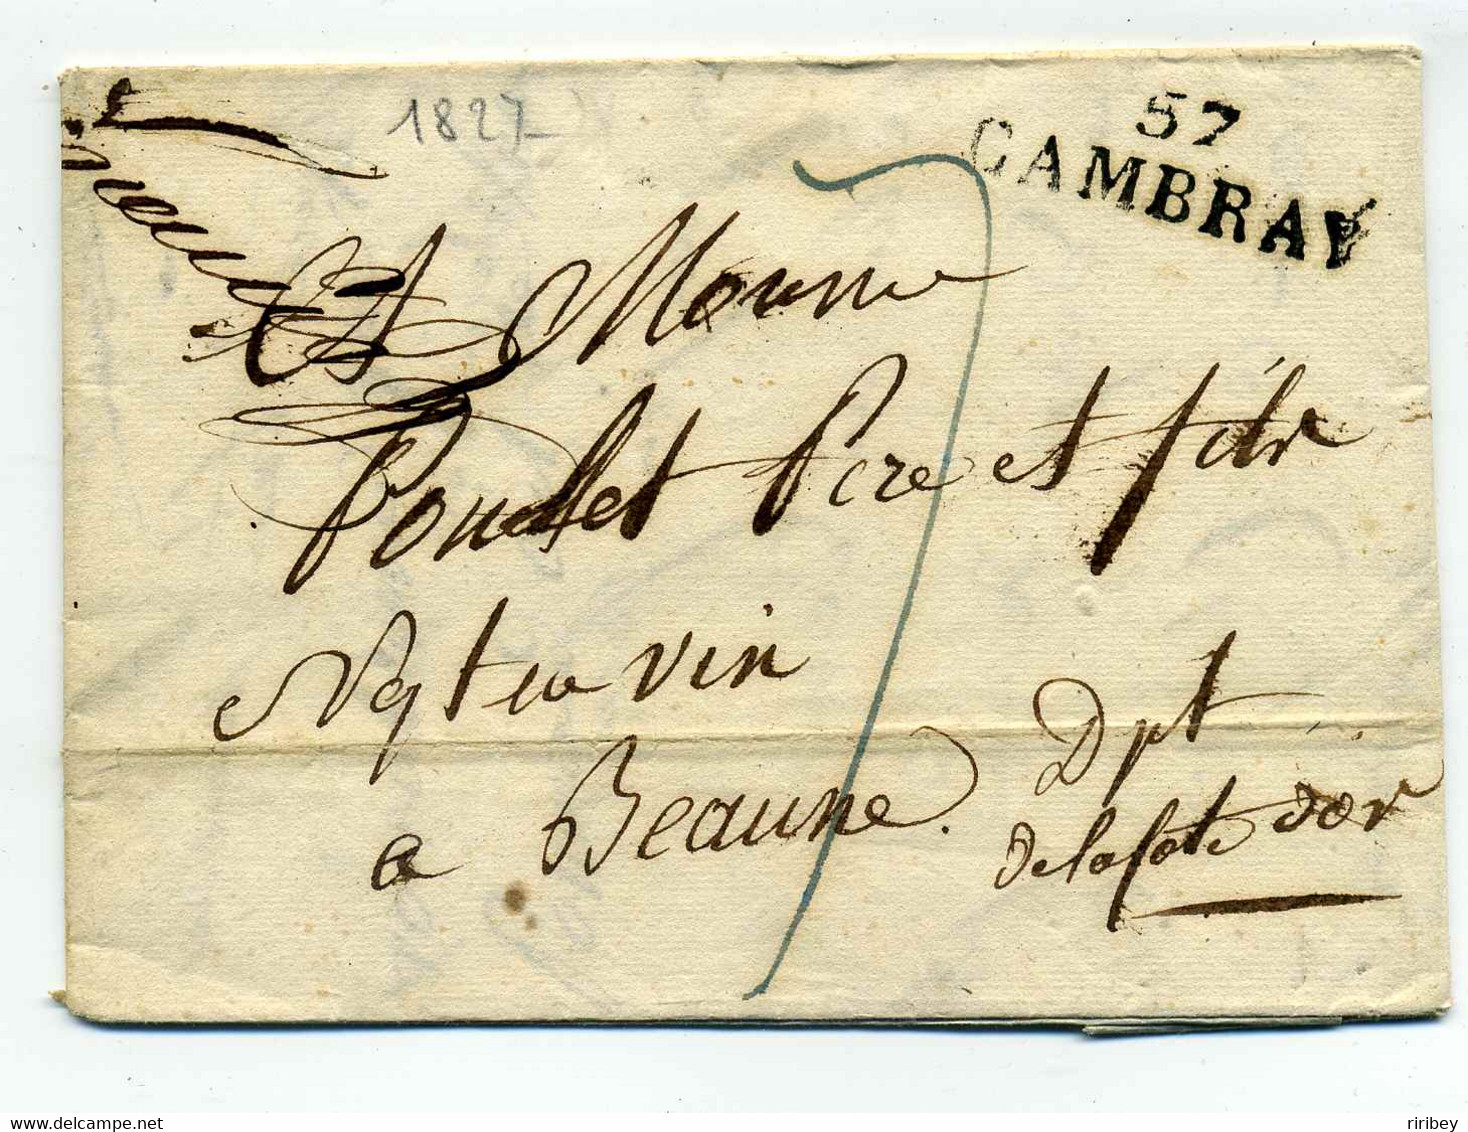 1827
57
CAMBRAY
7
A Monsieur
Poullet Pere et fils
Negt en vin
a Beaune
Dpt
De la Cote d'or
riribey